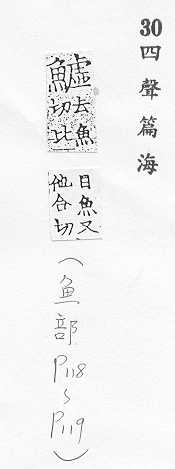 30四聲篇海
鱋
去魚
切比
目魚又
他合切
(鱼部P118~P119)